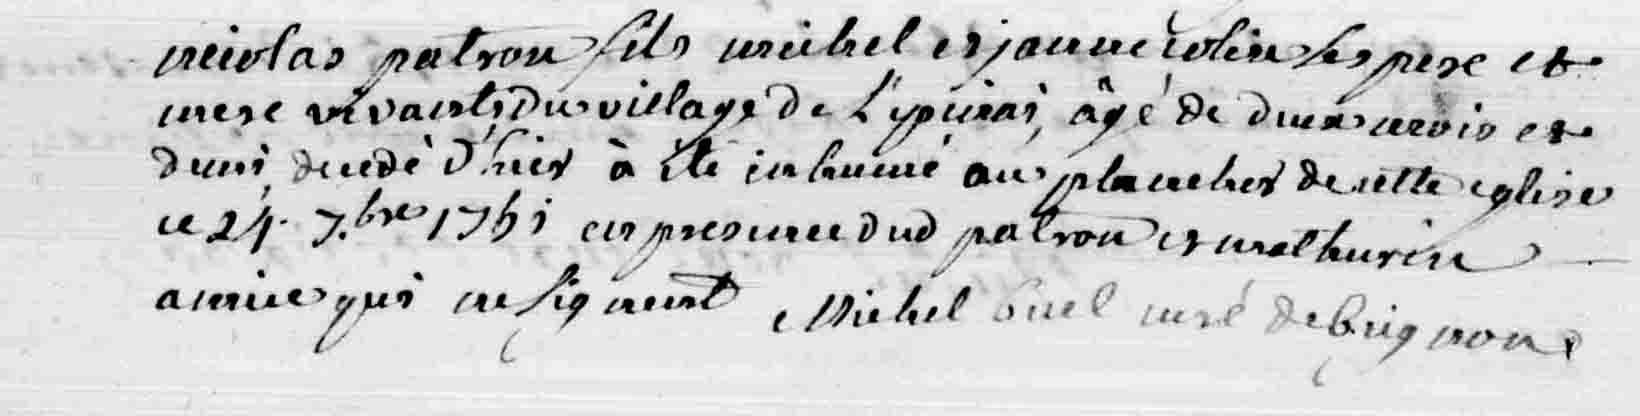 nicolas patron fils michel et janne colin ses pere et
mere vivants du village de L'epinai, âgé de deux mois et
demi, decedé d'hier à été inhumé au plancher de cette eglise
ce 24. 7.bre 1751 en presence dud patron et mathurin
amice qui ne signent Michel buel curé de brignon